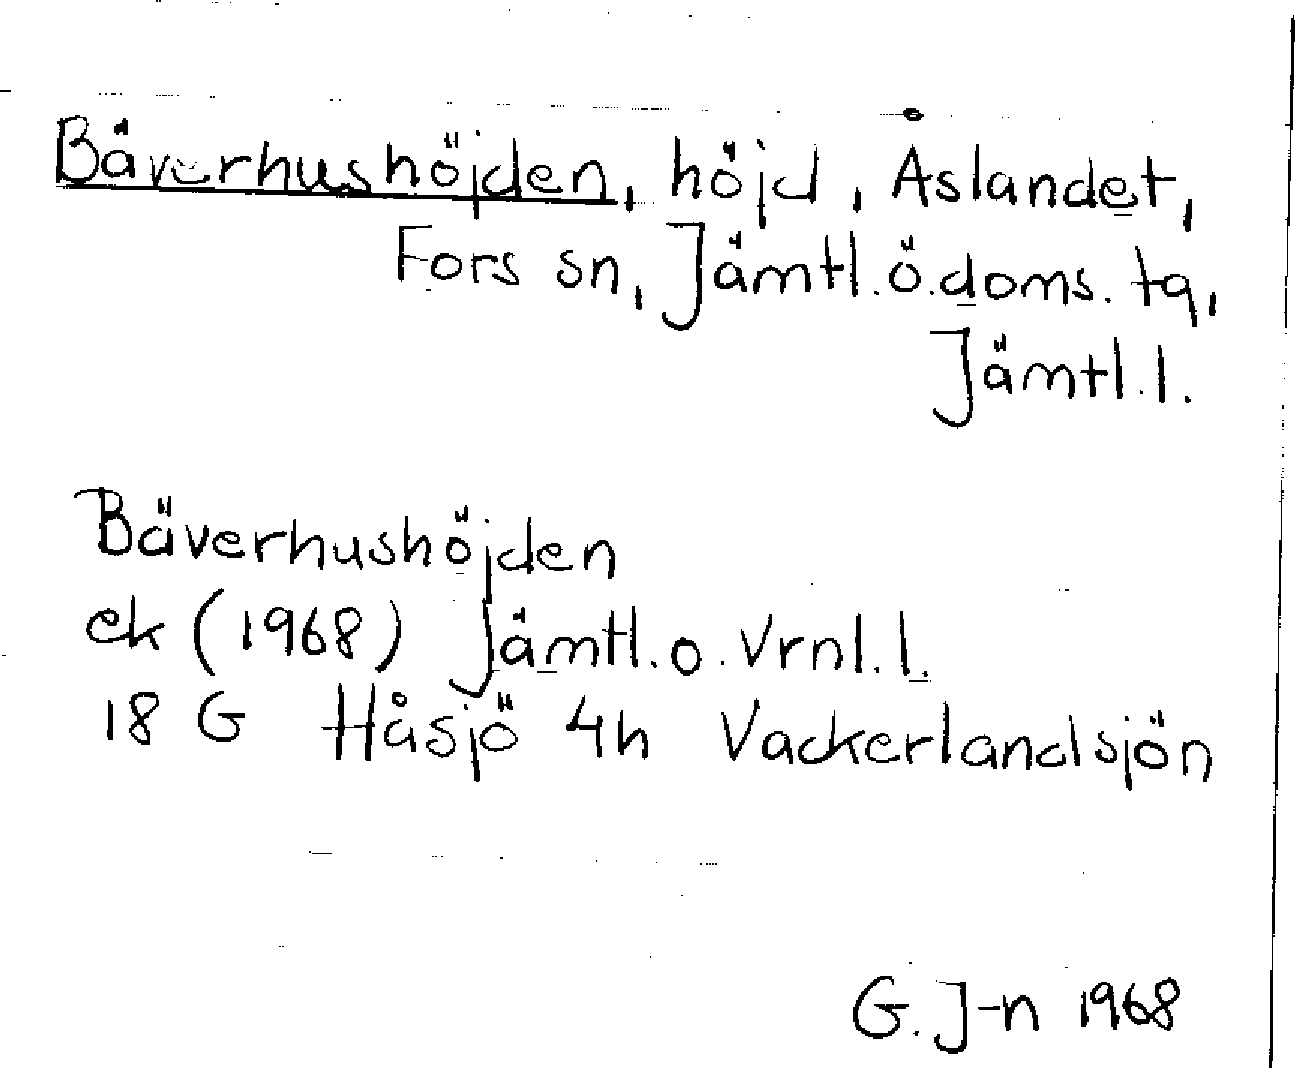 Bäverhushöjden, höjd, Åslandet,
Fors sn, Jämtl.ö.doms.tg,
Jämtl.l.
Bäverhushöjden
ek (1968) Jämtl.o.Vrnl.l.
18 G Håsjö 4h Vackerlandsjön
G. J-n 1968